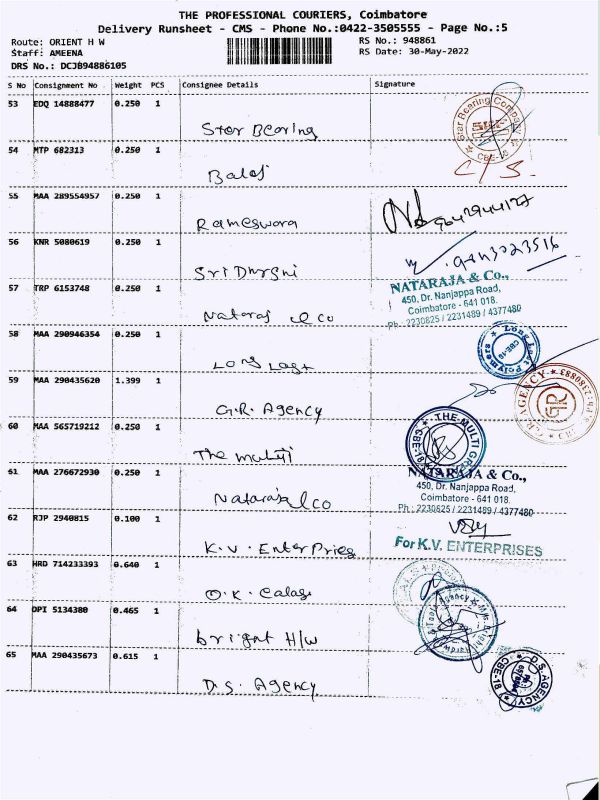 THE PROFESSIONAL COURIERS, Coimbatore
Delivery Runsheet - CMS - Phone No.:0422-3505555 - Page No.:5
Route: ORIENT H W
RS No.: 948861
Staff: AMEENA
RS Date: 30-May-2022
DRS No.: DCJB94886105
S No Consignment No Weight PCS Consignee Details Signature
53 EDQ 14888477 0.250 1
Star Bearing
Star Bearing Company
CBE-18
54 MTP 682313 0.250 1
Balaj
55 MAA 289554957 0.250 1
Rameswara
56 KNR 5080619 0.250 1
Sri Dhrsni
9443223516
57 TRP 6153748 0.250 1
Nataraj & co
NATARAJA & Co.,
450, Dr. Nanjappa Road,
Coimbatore - 641 018.
Ph : 2230825 / 2231489 / 4377480
58 MAA 290946354 0.250 1
Long Last
Long Last Polymers
CBE-18
59 MAA 290435620 1.399 1
G.R. Agency
G.R. AGENCY
GR
60 MAA 565719212 0.250 1
The multi
THE MULTI
CBE-18
61 MAA 276672930 0.250 1
Nataraja & co
NATARAJA & Co.,
450, Dr. Nanjappa Road,
Coimbatore - 641 018.
Ph : 2230825 / 2231489 / 4377480
62 RJP 2940815 0.100 1
K.V. Enterpries
For K.V. ENTERPRISES
63 HRD 714233393 0.640 1
O.K. Ealags
64 OPI 5134380 0.465 1
bright H/w
65 MAA 290435673 0.615 1
D.S. Agency
D.S. AGENCY
CBE-18